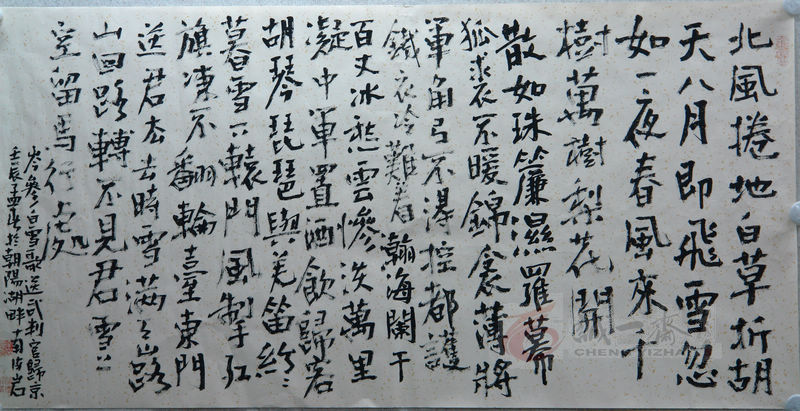 北風捲地白草折胡
天八月即飛雪忽
如一夜春風來千
樹萬樹梨花開
散如珠簾濕羅幕
狐裘不暖錦衾薄將
軍角弓不得控都護
鐵衣冷難着瀚海闌干
百丈冰愁雲慘淡萬里
凝中軍置酒飲歸客
胡琴琵琶與羌笛紛〻
暮雪下轅門風掣紅
旗凍不翻輪臺東門
送君去去時雪滿天山路
山回路轉不見君雪上
空留馬行處
岑參白雪歌送武判官歸京
壬辰孟於朝陽湖畔岩
誠一齋
CHENGYIZHAI